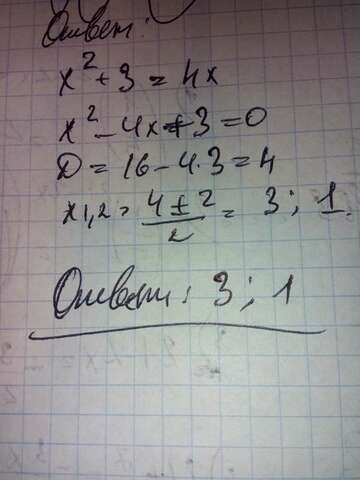 Ответ:
x² + 3 = 4x
x² - 4x + 3 = 0
D = 16 - 4·3 = 4
x1,2 = (4 ± 2)/2 = 3; 1.
Ответ: 3; 1